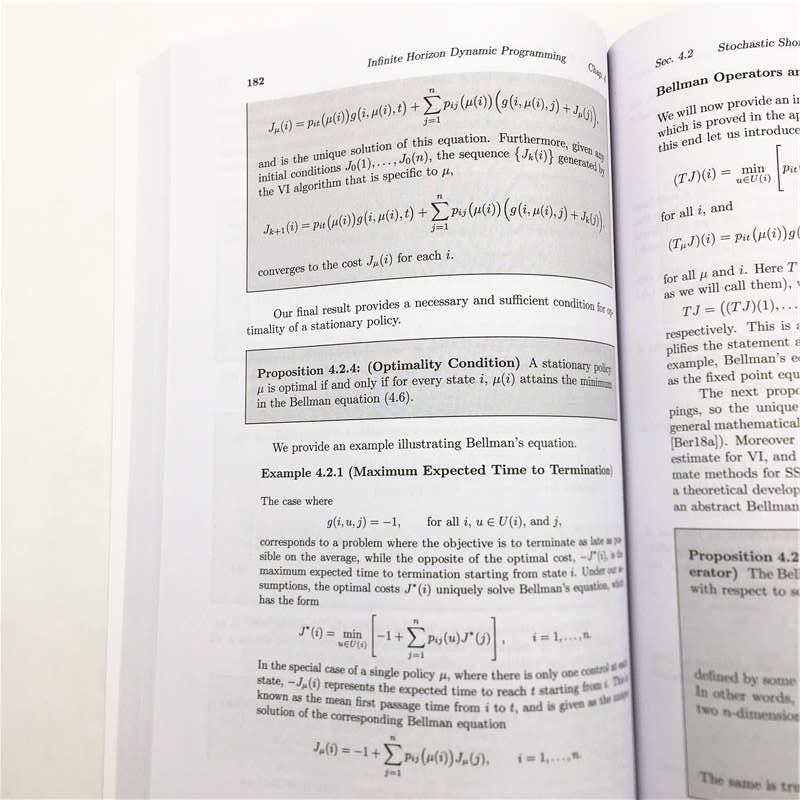 182
Infinite Horizon Dynamic Programming Chap. 4
J_μ(i) = p_{it}(μ(i))g(i, μ(i), t) + ∑_{j=1}^{n} p_{ij}(μ(i))(g(i, μ(i), j) + J_μ(j)),
and is the unique solution of this equation. Furthermore, given any
initial conditions J_0(1), . . . , J_0(n), the sequence {J_k(i)} generated by
the VI algorithm that is specific to μ,
J_{k+1}(i) = p_{it}(μ(i))g(i, μ(i), t) + ∑_{j=1}^{n} p_{ij}(μ(i))(g(i, μ(i), j) + J_k(j)),
converges to the cost J_μ(i) for each i.
Our final result provides a necessary and sufficient condition for op-
timality of a stationary policy.
Proposition 4.2.4: (Optimality Condition) A stationary policy
μ is optimal if and only if for every state i, μ(i) attains the minimum
in the Bellman equation (4.6).
We provide an example illustrating Bellman's equation.
Example 4.2.1 (Maximum Expected Time to Termination)
The case where
g(i, u, j) = −1, for all i, u ∈ U(i), and j,
corresponds to a problem where the objective is to terminate as late as pos-
sible on the average, while the opposite of the optimal cost, −J*(i), is the
maximum expected time to termination starting from state i. Under our as-
sumptions, the optimal costs J*(i) uniquely solve Bellman's equation, which
has the form
J*(i) = min_{u∈U(i)} [−1 + ∑_{j=1}^{n} p_{ij}(u)J*(j)], i = 1, . . . , n.
In the special case of a single policy μ, where there is only one control at each
state, −J_μ(i) represents the expected time to reach t starting from i. This is
known as the mean first passage time from i to t, and is given as the unique
solution of the corresponding Bellman equation
J_μ(i) = −1 + ∑_{j=1}^{n} p_{ij}(μ(i))J_μ(j), i = 1, . . . , n.
Sec. 4.2 Stochastic Shor
Bellman Operators an
We will now provide an in
which is proved in the ap
this end let us introduce
(TJ)(i) = min_{u∈U(i)} [p_{it}
for all i, and
(T_μJ)(i) = p_{it}(μ(i))g(
for all μ and i. Here T
as we will call them), v
TJ = ((TJ)(1), . . .
respectively. This is a
plifies the statement a
example, Bellman's e
as the fixed point equ
The next propo
pings, so the unique
general mathematical
[Ber18a]). Moreover
estimate for VI, and
mate methods for SS
a theoretical develop
an abstract Bellman
Proposition 4.2
erator) The Bell
with respect to s
defined by some
In other words,
two n-dimension
The same is tru